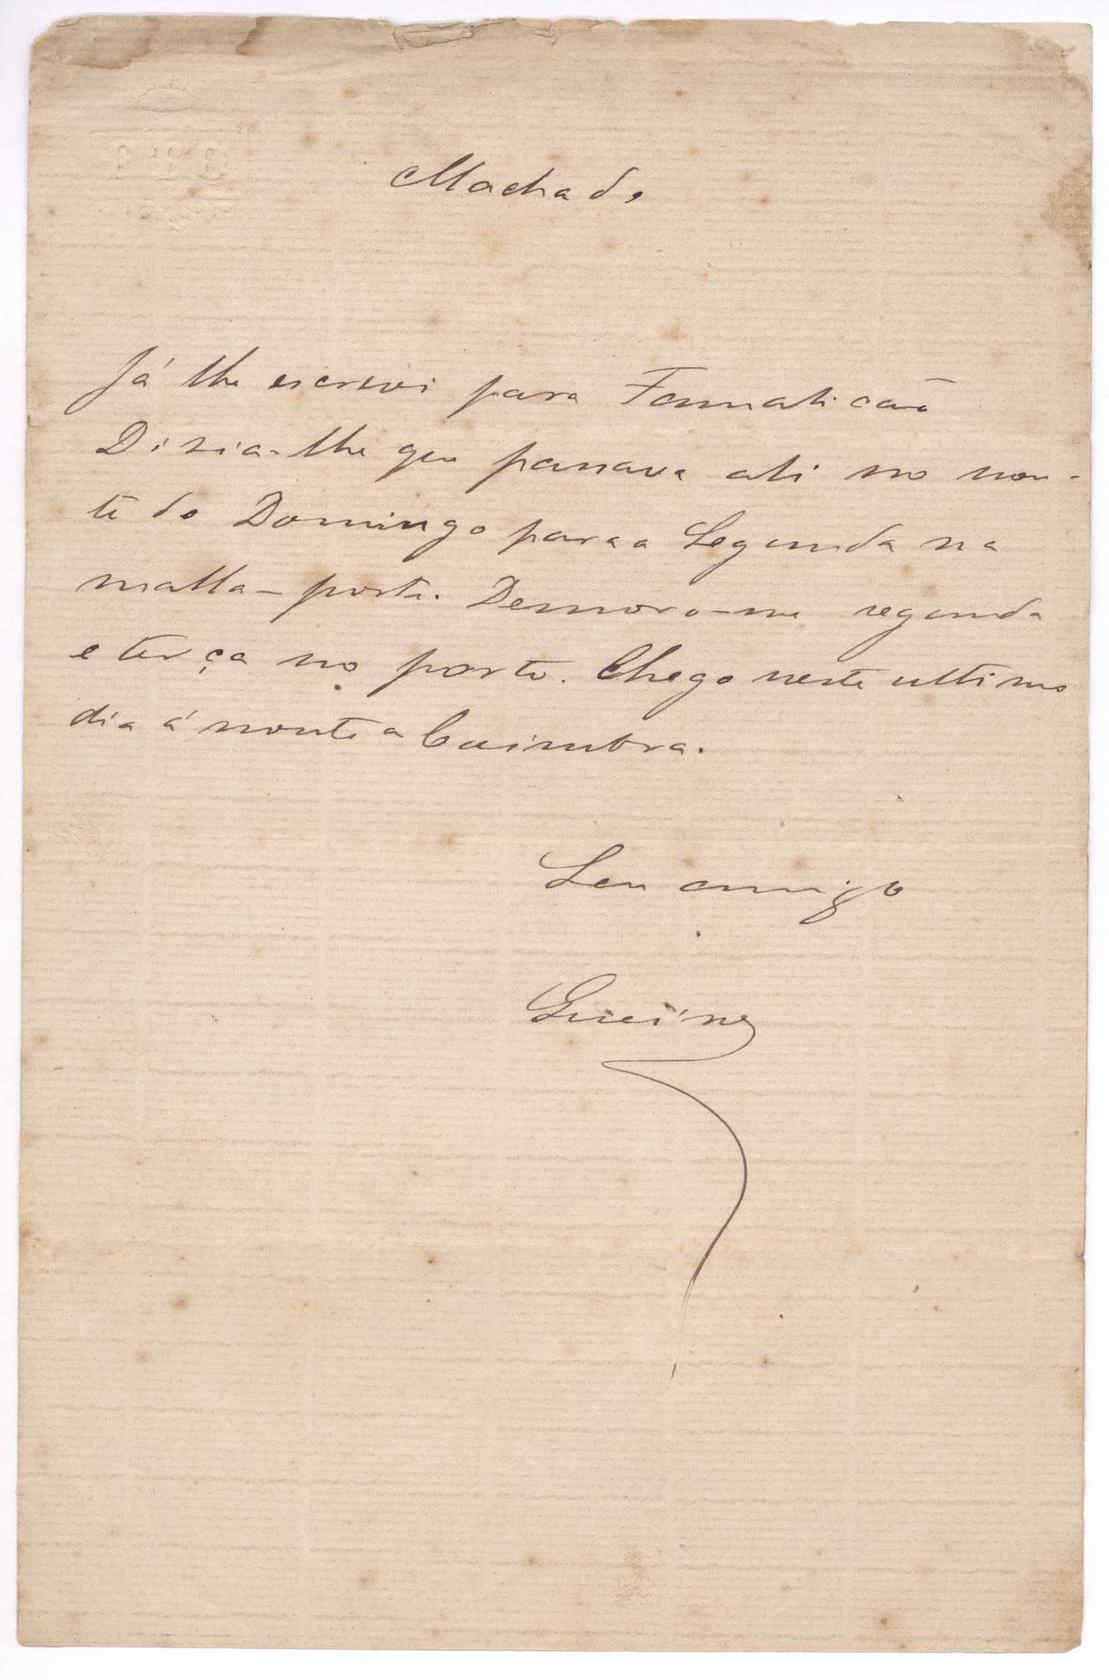 Machado
Já lhe escrevi para Famalicão
Dizia-lhe que passava ali no nou-
te do Domingo para a Segunda na
malla-posta. Demoro-me segunda
e terça no porto. Chego neste ultimo
dia á noute a Coimbra.
Seu amigo